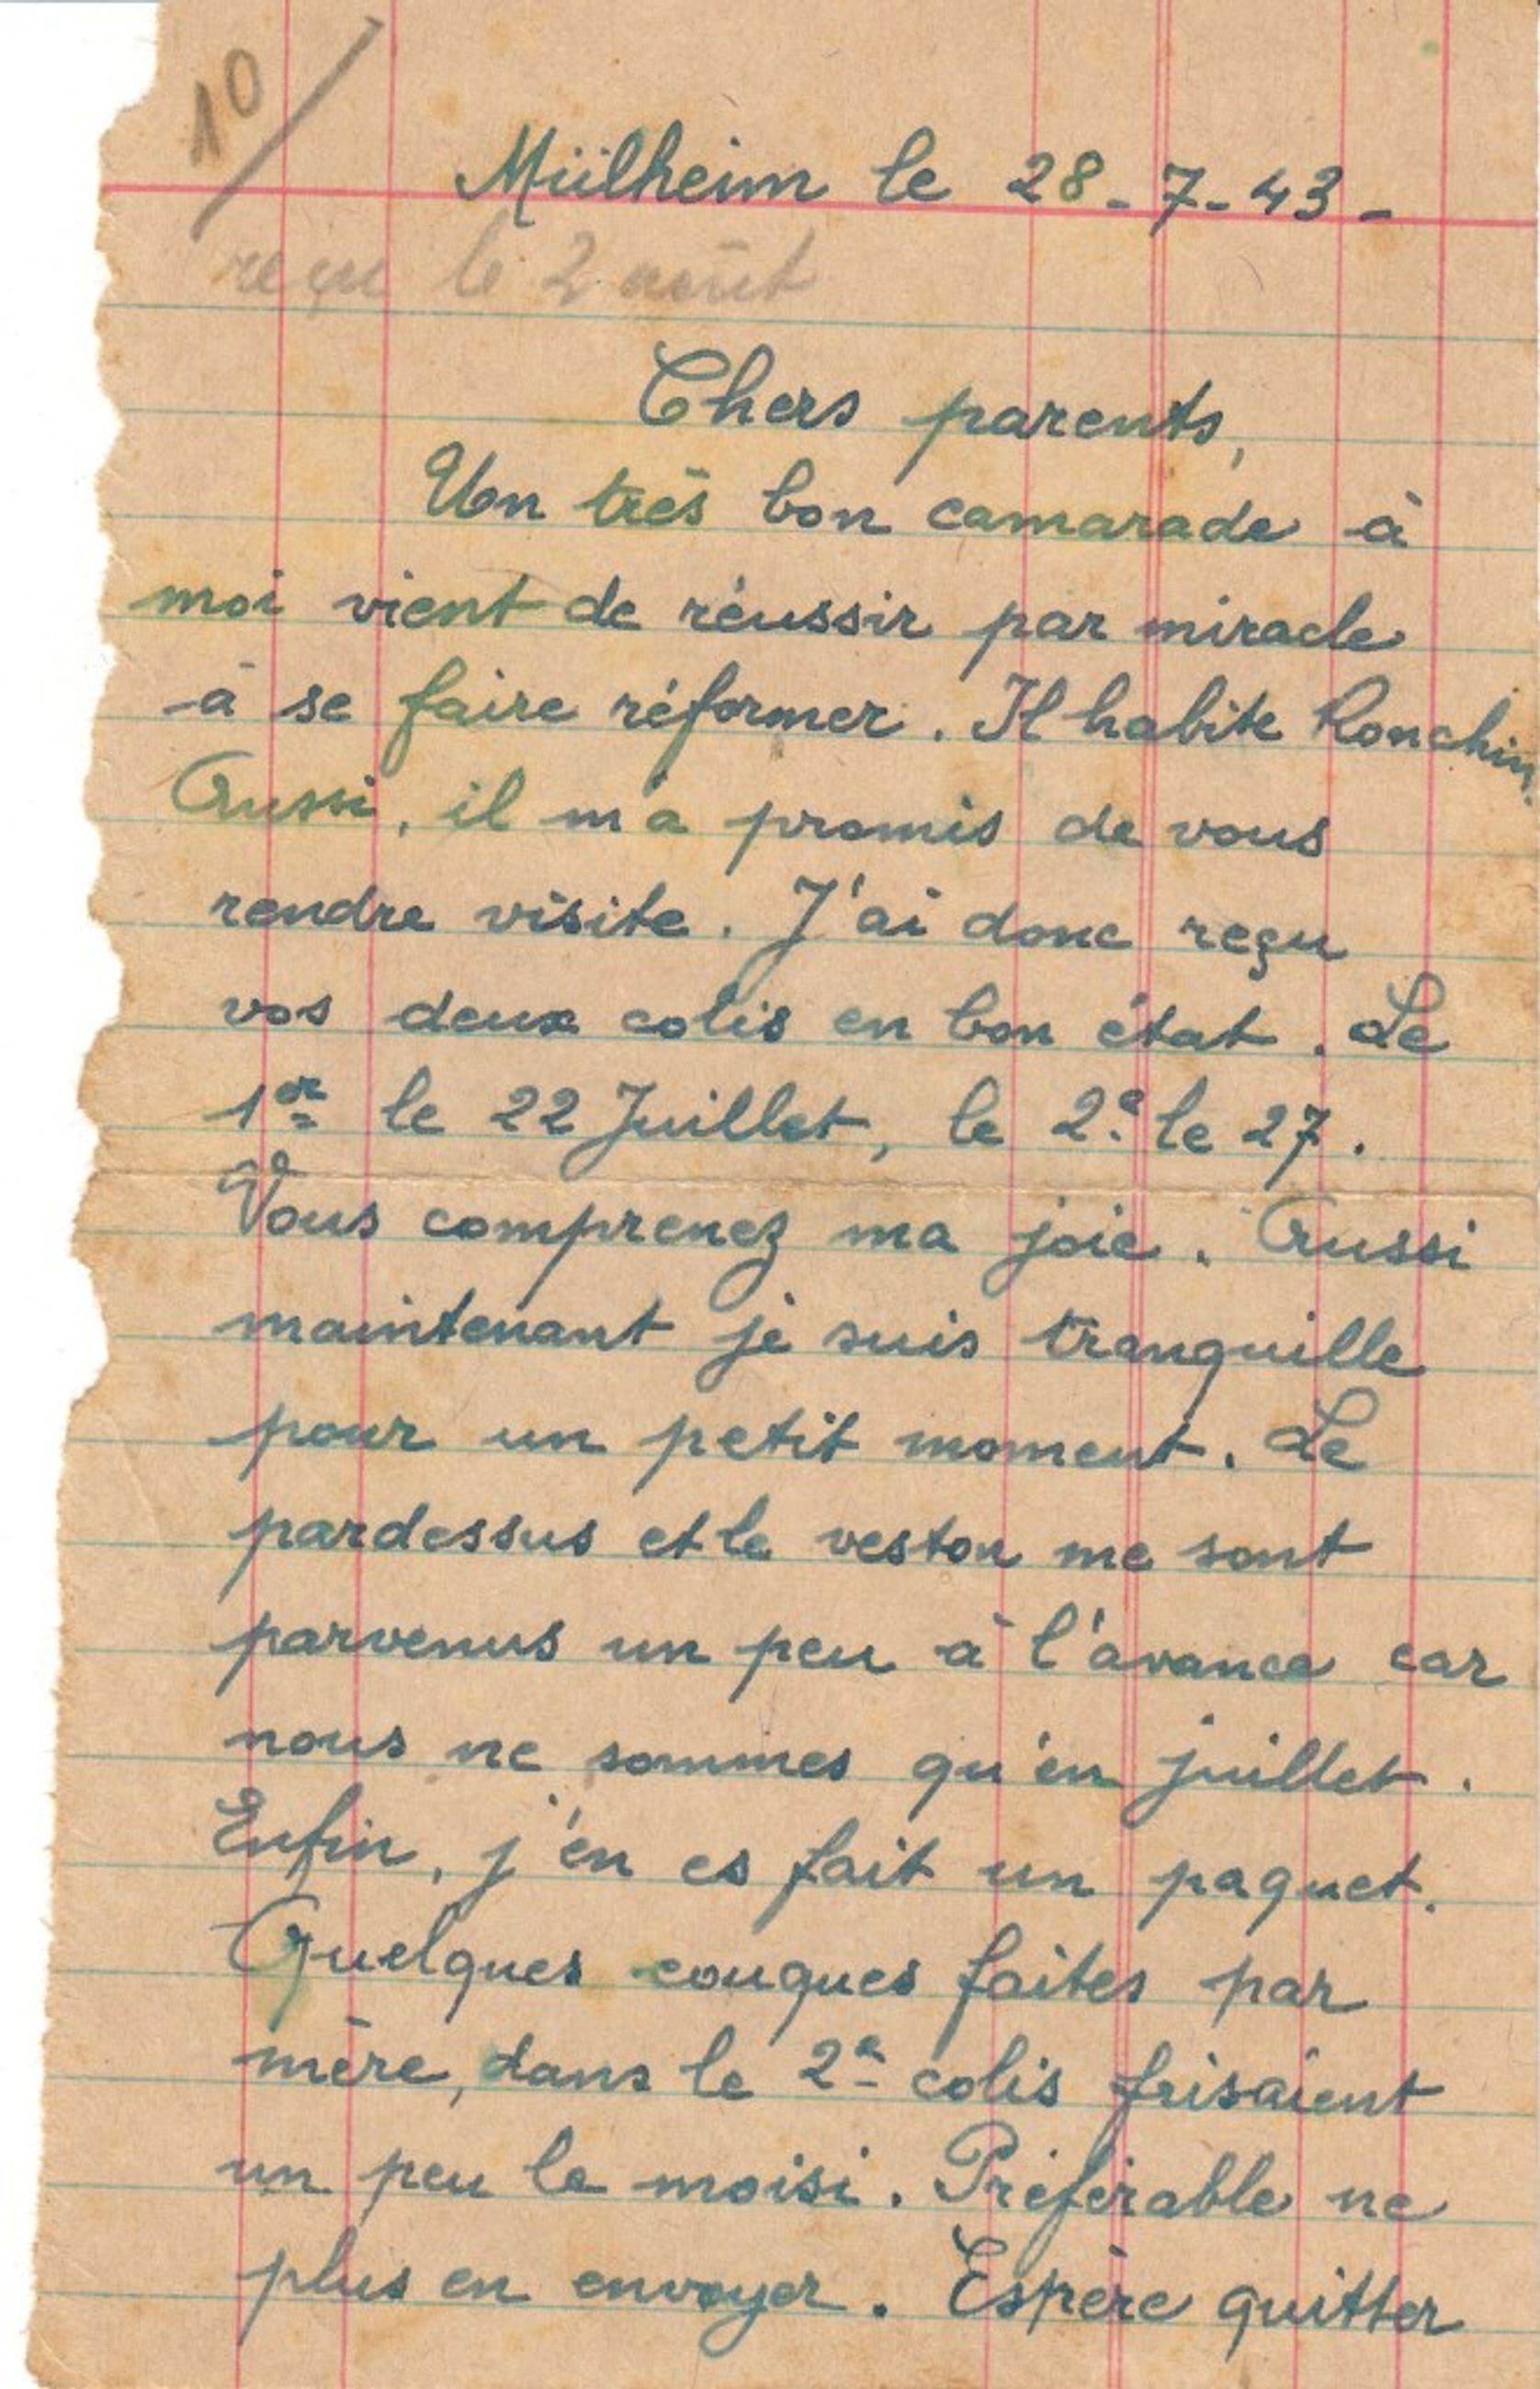 10
Mülheim le 28-7-43-
reçu le 2 août
Chers parents,
Un très bon camarade à
moi vient de réussir par miracle
à se faire réformer. Il habite Ronchin.
Aussi, il m'a promis de vous
rendre visite. J'ai donc reçu
vos deux colis en bon état. Le
1er le 22 Juillet, le 2e le 27.
Vous comprenez ma joie. Aussi
maintenant je suis tranquille
pour un petit moment. Le
pardessus et le veston me sont
parvenus un peu à l'avance car
nous ne sommes qu'en juillet.
Enfin, j'en es fait un paquet.
Quelques couques faites par
mère, dans le 2e colis frisaient
un peu le moisi. Préférable ne
plus en envoyer. Espère quitter